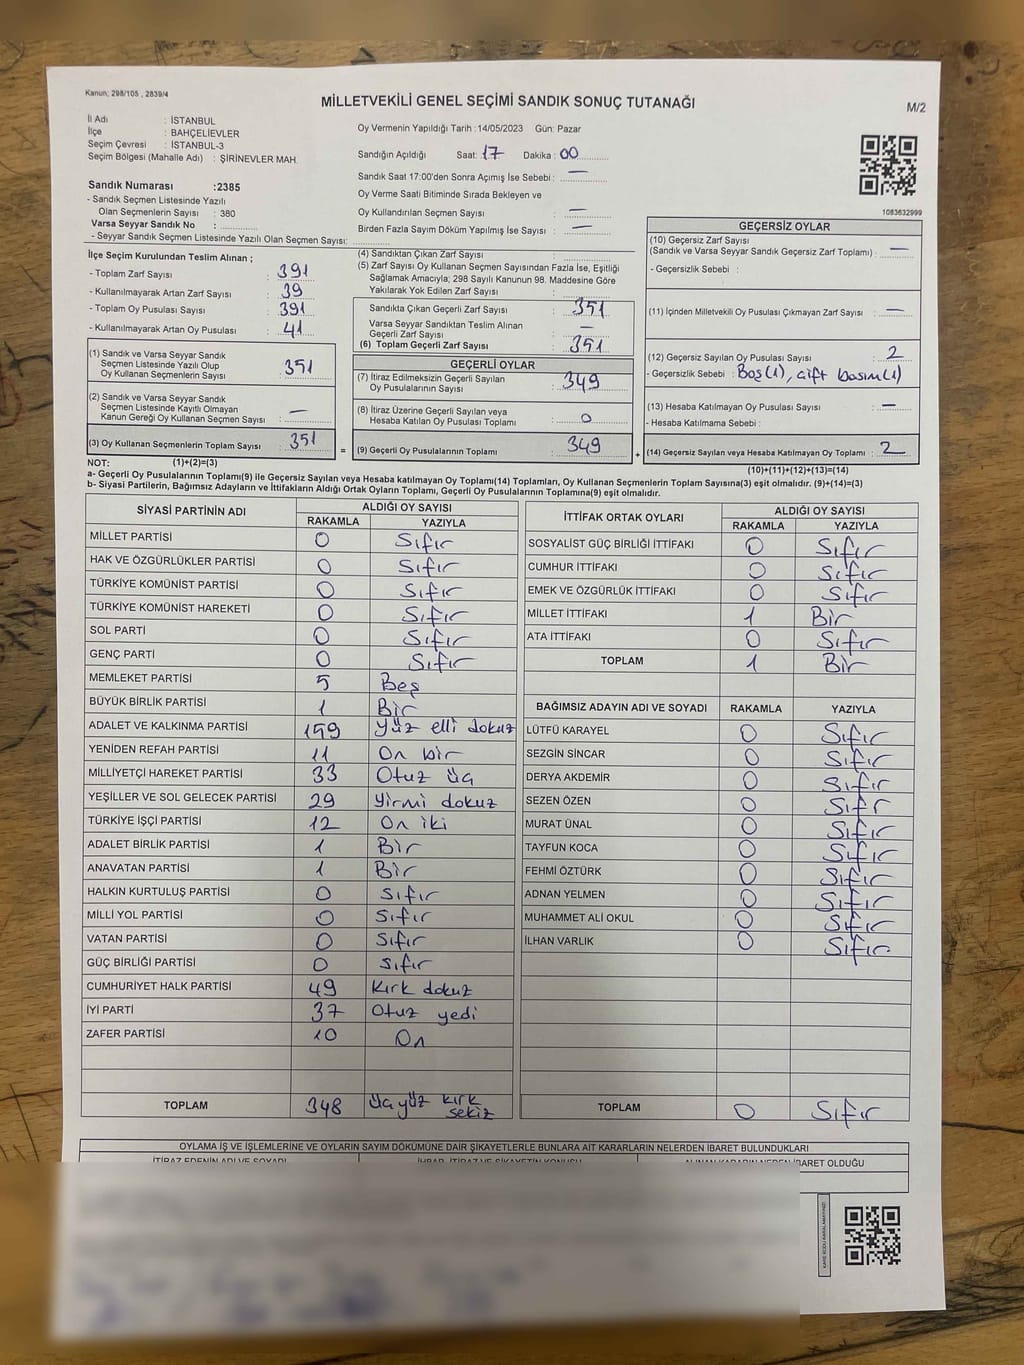 Kanun; 298/105 , 2839/4
MİLLETVEKİLİ GENEL SEÇİMİ SANDIK SONUÇ TUTANAĞI
M/2
İl Adı : İSTANBUL
İlçe : BAHÇELİEVLER
Seçim Çevresi : İSTANBUL-3
Seçim Bölgesi (Mahalle Adı) : ŞİRİNEVLER MAH.
Sandık Numarası :2385
- Sandık Seçmen Listesinde Yazılı
Olan Seçmenlerin Sayısı : 380
Varsa Seyyar Sandık No :
- Seyyar Sandık Seçmen Listesinde Yazılı Olan Seçmen Sayısı:
Oy Vermenin Yapıldığı Tarih :14/05/2023 Gün: Pazar
Sandığın Açıldığı Saat: 17 Dakika : 00
Sandık Saat 17:00'den Sonra Açımış İse Sebebi : —
Oy Verme Saati Bitiminde Sırada Bekleyen ve
Oy Kullandırılan Seçmen Sayısı : —
Birden Fazla Sayım Döküm Yapılmış İse Sayısı : —
1083632999
İlçe Seçim Kurulundan Teslim Alınan ;
- Toplam Zarf Sayısı : 391
- Kullanılmayarak Artan Zarf Sayısı : 39
- Toplam Oy Pusulası : 391
- Kullanılmayarak Artan Oy Pusulası : 41
(1) Sandık ve Varsa Seyyar Sandık
Seçmen Listesinde Yazılı Olup
Oy Kullanan Seçmenlerin Sayısı : 351
(2) Sandık ve Varsa Seyyar Sandık
Seçmen Listesinde Kayıtlı Olmayan
Kanun Gereği Oy Kullanan Seçmen Sayısı : —
(3) Oy Kullanan Seçmenlerin Toplam Sayısı : 351
(1)+(2)=(3)
(4) Sandıktan Çıkan Zarf Sayısı :
(5) Zarf Sayısı Oy Kullanan Seçmen Sayısından Fazla İse, Eşitliği
Sağlamak Amacıyla; 298 Sayılı Kanunun 98. Maddesine Göre
Yakılarak Yok Edilen Zarf Sayısı :
Sandıkta Çıkan Geçerli Zarf Sayısı : 351
Varsa Seyyar Sandıktan Teslim Alınan
Geçerli Zarf Sayısı : —
(6) Toplam Geçerli Zarf Sayısı : 351
GEÇERLİ OYLAR
(7) İtiraz Edilmeksizin Geçerli Sayılan
Oy Pusulalarının Sayısı : 349
(8) İtiraz Üzerine Geçerli Sayılan veya
Hesaba Katılan Oy Pusulası Toplamı : 0
= (9) Geçerli Oy Pusulalarının Toplamı : 349
GEÇERSİZ OYLAR
(10) Geçersiz Zarf Sayısı
(Sandık ve Varsa Seyyar Sandık Geçersiz Zarf Toplamı) : —
- Geçersizlik Sebebi :
(11) İçinden Milletvekili Oy Pusulası Çıkmayan Zarf Sayısı : —
(12) Geçersiz Sayılan Oy Pusulası Sayısı : 2
- Geçersizlik Sebebi : Boş(1), çift basım(1)
(13) Hesaba Katılmayan Oy Pusulası Sayısı : —
- Hesaba Katılmama Sebebi :
+ (14) Geçersiz Sayılan veya Hesaba Katılmayan Oy Toplamı : 2
(10)+(11)+(12)+(13)=(14)
NOT:
a- Geçerli Oy Pusulalarının Toplamı(9) ile Geçersiz Sayılan veya Hesaba katılmayan Oy Toplamı(14) Toplamları, Oy Kullanan Seçmenlerin Toplam Sayısına(3) eşit olmalıdır. (9)+(14)=(3)
b- Siyasi Partilerin, Bağımsız Adayların ve İttifakların Aldığı Ortak Oyların Toplamı, Geçerli Oy Pusulalarının Toplamına(9) eşit olmalıdır.
SİYASİ PARTİNİN ADI
ALDIĞI OY SAYISI
RAKAMLA YAZIYLA
MİLLET PARTİSİ 0 Sıfır
HAK VE ÖZGÜRLÜKLER PARTİSİ 0 Sıfır
TÜRKİYE KOMÜNİST PARTİSİ 0 Sıfır
TÜRKİYE KOMÜNİST HAREKETİ 0 Sıfır
SOL PARTİ 0 Sıfır
GENÇ PARTİ 0 Sıfır
MEMLEKET PARTİSİ 5 Beş
BÜYÜK BİRLİK PARTİSİ 1 Bir
ADALET VE KALKINMA PARTİSİ 159 Yüz elli dokuz
YENİDEN REFAH PARTİSİ 11 On bir
MİLLİYETÇİ HAREKET PARTİSİ 33 Otuz üç
YEŞİLLER VE SOL GELECEK PARTİSİ 29 Yirmi dokuz
TÜRKİYE İŞÇİ PARTİSİ 12 On iki
ADALET BİRLİK PARTİSİ 1 Bir
ANAVATAN PARTİSİ 1 Bir
HALKIN KURTULUŞ PARTİSİ 0 Sıfır
MİLLİ YOL PARTİSİ 0 Sıfır
VATAN PARTİSİ 0 Sıfır
GÜÇ BİRLİĞİ PARTİSİ 0 Sıfır
CUMHURİYET HALK PARTİSİ 49 Kırk dokuz
İYİ PARTİ 37 Otuz yedi
ZAFER PARTİSİ 10 On
TOPLAM 348 Üç yüz kırk sekiz
İTTİFAK ORTAK OYLARI
ALDIĞI OY SAYISI
RAKAMLA YAZIYLA
SOSYALİST GÜÇ BİRLİĞİ İTTİFAKI 0 Sıfır
CUMHUR İTTİFAKI 0 Sıfır
EMEK VE ÖZGÜRLÜK İTTİFAKI 0 Sıfır
MİLLET İTTİFAKI 1 Bir
ATA İTTİFAKI 0 Sıfır
TOPLAM 1 Bir
BAĞIMSIZ ADAYIN ADI VE SOYADI RAKAMLA YAZIYLA
LÜTFÜ KARAYEL 0 Sıfır
SEZGİN SİNCAR 0 Sıfır
DERYA AKDEMİR 0 Sıfır
SEZEN ÖZEN 0 Sıfır
MURAT ÜNAL 0 Sıfır
TAYFUN KOCA 0 Sıfır
FEHMİ ÖZTÜRK 0 Sıfır
ADNAN YELMEN 0 Sıfır
MUHAMMET ALİ OKUL 0 Sıfır
İLHAN VARLIK 0 Sıfır
TOPLAM 0 Sıfır
OYLAMA İŞ VE İŞLEMLERİNE VE OYLARIN SAYIM DÖKÜMÜNE DAİR ŞİKAYETLERLE BUNLARA AİT KARARLARIN NELERDEN İBARET BULUNDUKLARI
İTİRAZ EDENİN ADI VE SOYADI
İHBAR, İTİRAZ VE ŞİKAYETİN KONUSU
ALINAN KARARIN NEDEN İBARET OLDUĞU
KARE KODU KARALAMAYINIZ!